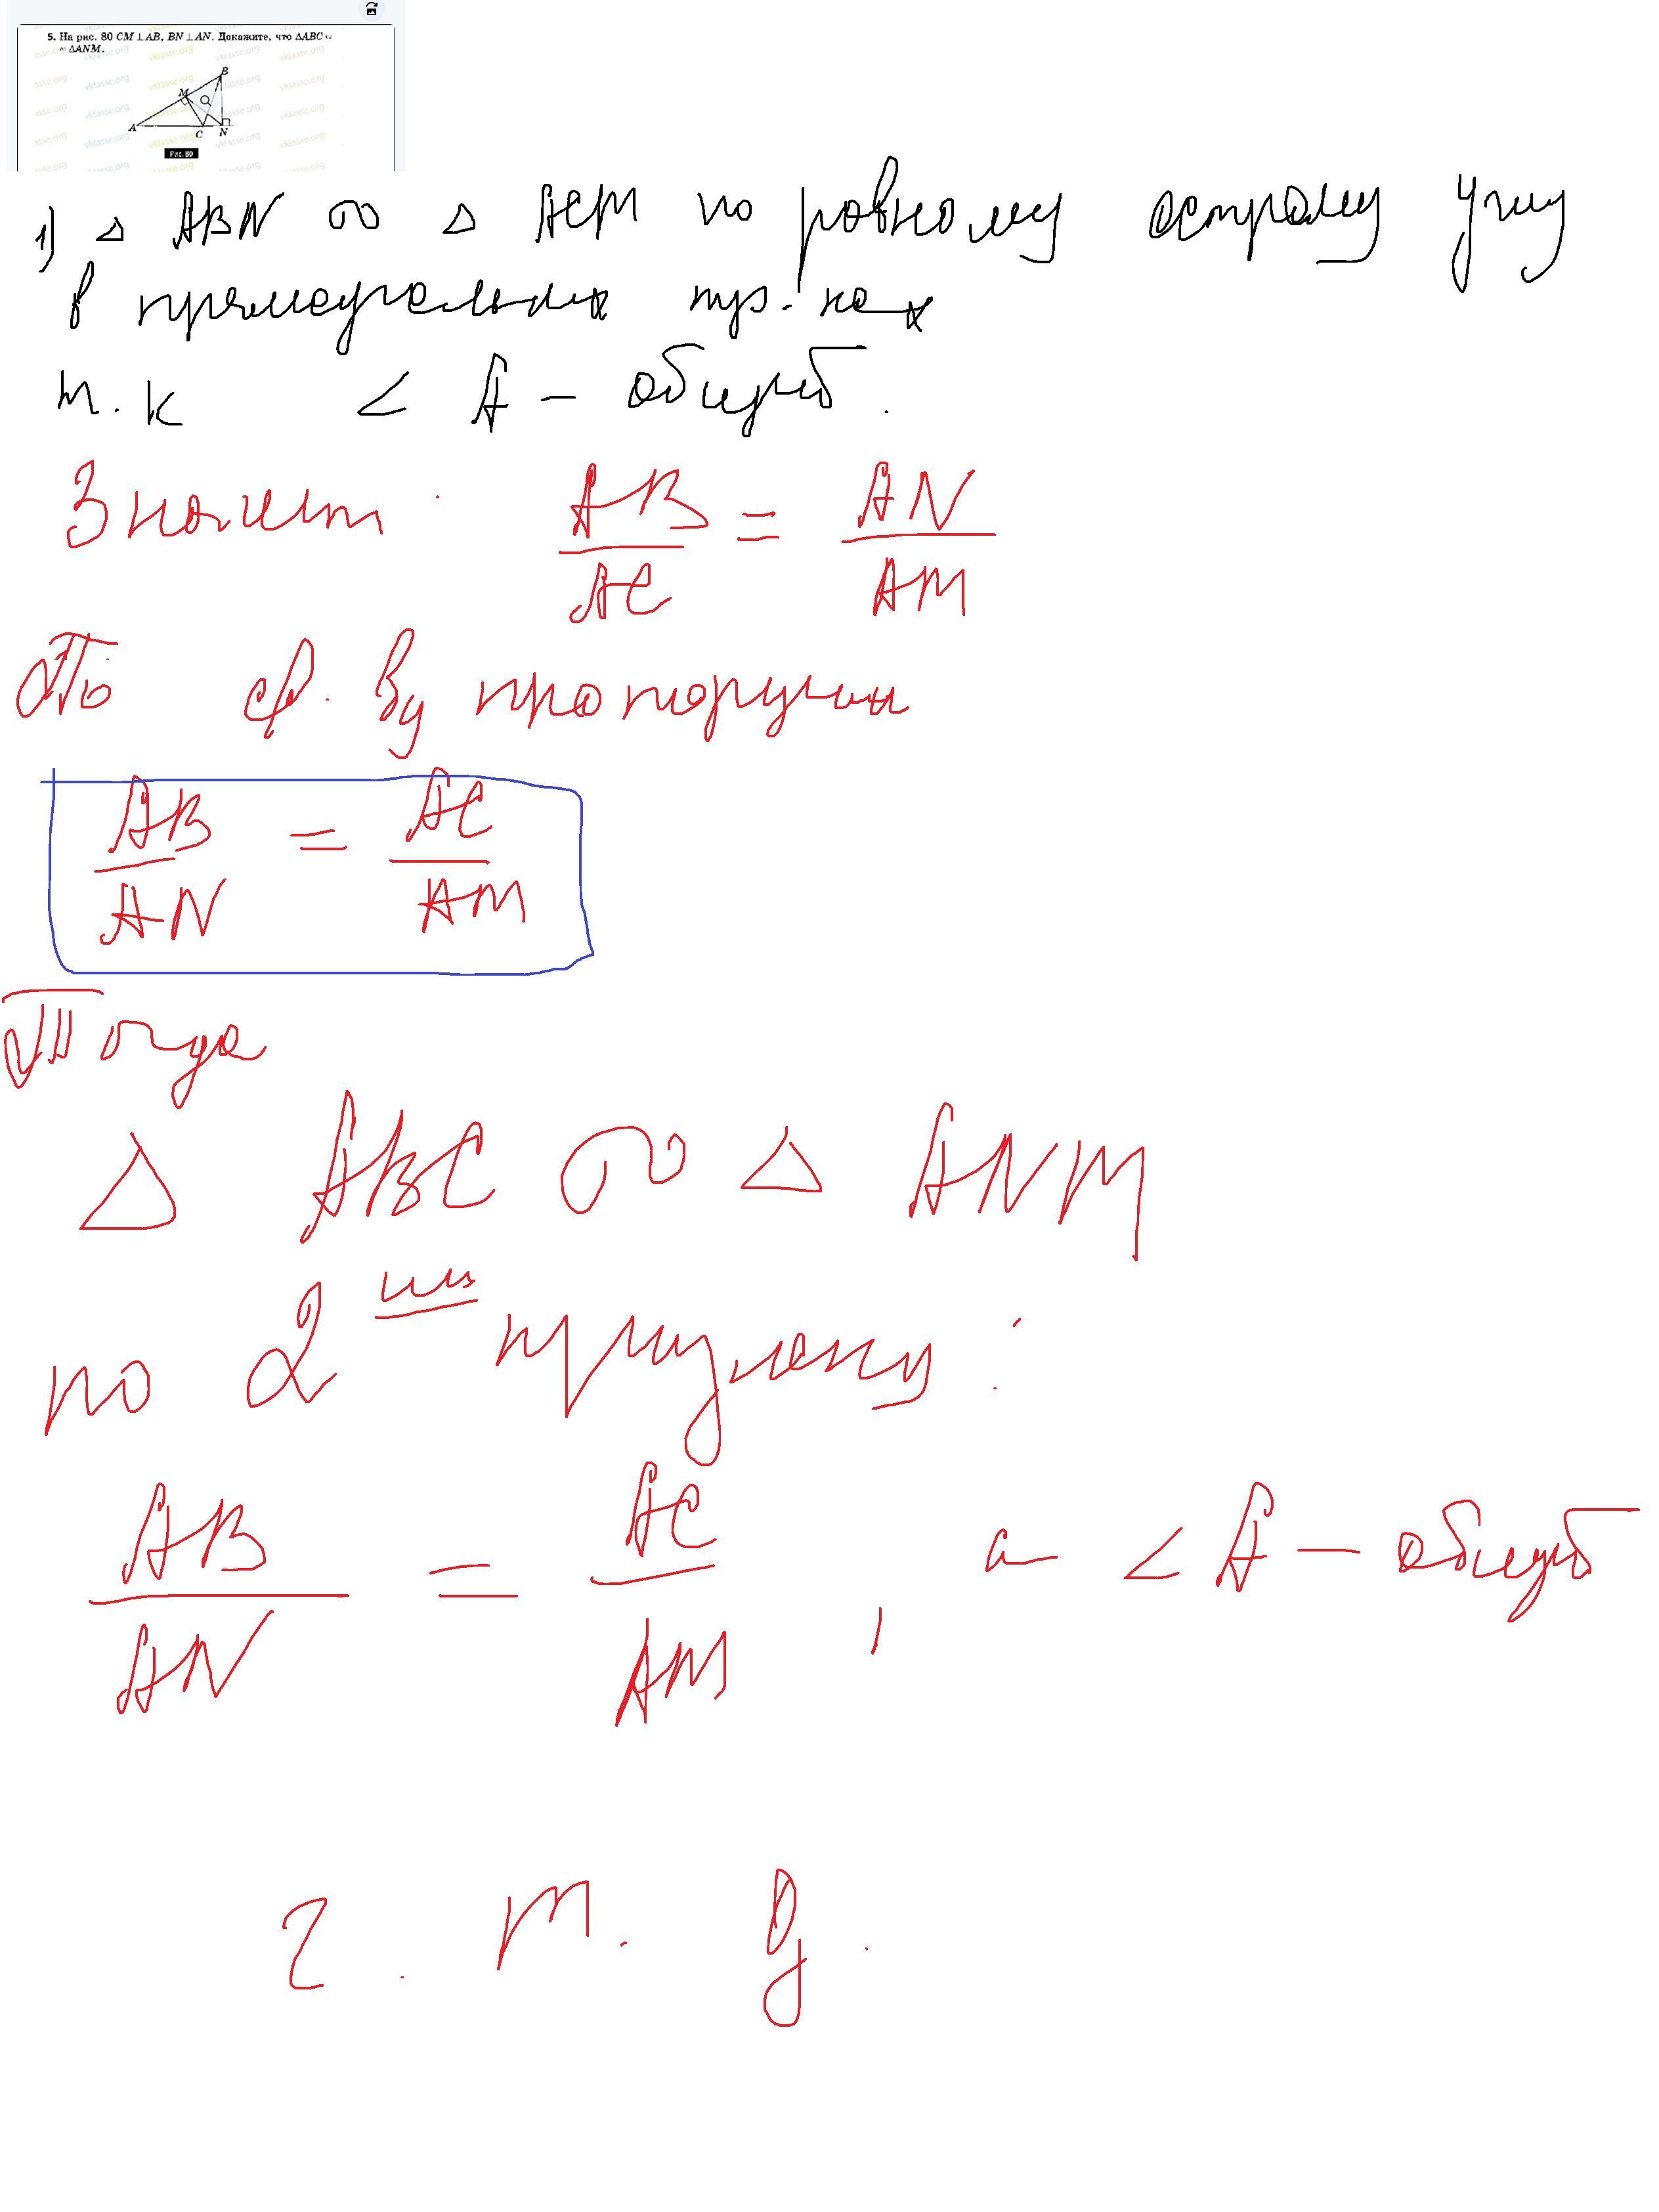 5. На рис. 80 CM ⊥ AB, BN ⊥ AN. Докажите, что ΔABC ∽
∽ ΔANM.
B
M
A
C N
Рис. 80
1) Δ ABN ∽ Δ ACM по равному острому углу
в прямоугольных тр-ках
т.к < A - общий.
Значит AB/AC = AN/AM
По св. ву пропорции
AB/AN = AC/AM
Тогда
Δ ABC ∽ Δ ANM
по 2 му признаку:
AB/AN = AC/AM, а < A - общий
ч. т. д.